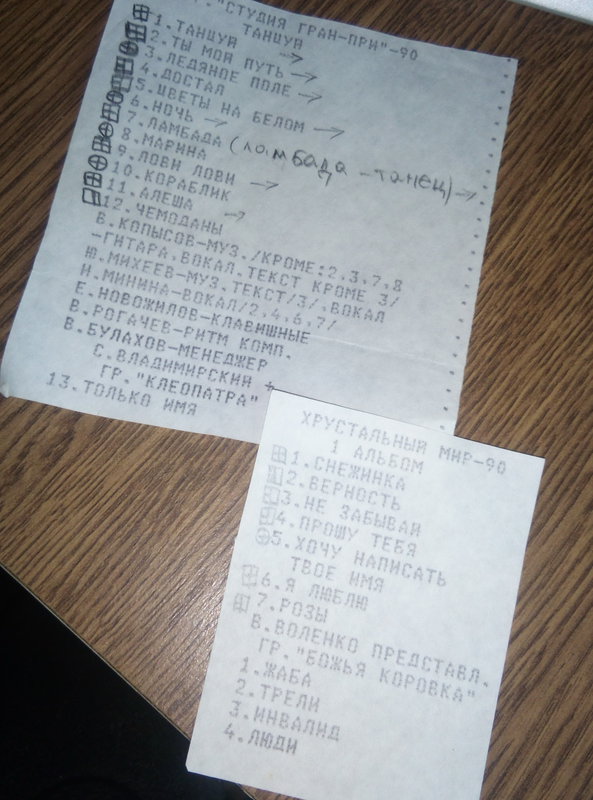 ."СТУДИЯ ГРАН-ПРИ"-90
1.ТАНЦУЙ ТАНЦУЙ
2.ТЫ МОЙ ПУТЬ →
3.ЛЕДЯНОЕ ПОЛЕ →
4.ДОСТАЛ
5.ЦВЕТЫ НА БЕЛОМ →
6.НОЧЬ →
7.ЛАМБАДА (ламбада - танец) →
8.МАРИНА
9.ЛОВИ ЛОВИ
10.КОРАБЛИК →
11.АЛЕША
12.ЧЕМОДАНЫ →
В.КОПЫСОВ-МУЗ./КРОМЕ:2,3,7,8
-ГИТАРА,ВОКАЛ,ТЕКСТ КРОМЕ 3/
Ю.МИХЕЕВ-МУЗ,ТЕКСТ/3/,ВОКАЛ
Н.МИНИНА-ВОКАЛ/2,4,6,7/
Е.НОВОЖИЛОВ-КЛАВИШНЫЕ
В.РОГАЧЕВ-РИТМ КОМП.
В.БУЛАХОВ-МЕНЕДЖЕР
С.ВЛАДИМИРСКИЙ +
ГР."КЛЕОПАТРА"
13.ТОЛЬКО ИМЯ
ХРУСТАЛЬНЫЙ МИР-90
1 АЛЬБОМ
1.СНЕЖИНКА
2.ВЕРНОСТЬ
3.НЕ ЗАБЫВАЙ
4.ПРОШУ ТЕБЯ
5.ХОЧУ НАПИСАТЬ
ТВОЕ ИМЯ
6.Я ЛЮБЛЮ
7.РОЗЫ
В.ВОЛЕНКО ПРЕДСТАВЛ.
ГР."БОЖЬЯ КОРОВКА"
1.ЖАБА
2.ТРЕЛИ
3.ИНВАЛИД
4.ЛЮДИ